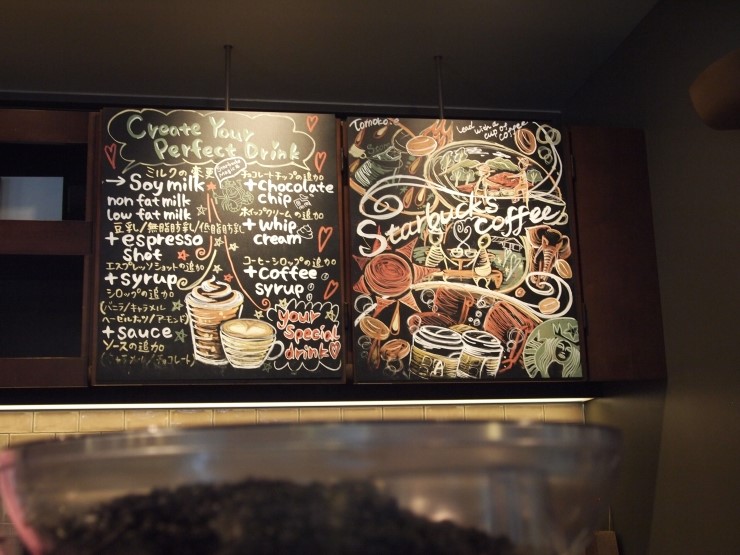 Create Your
Perfect Drink
ミルクの変更
→ Soy milk
non fat milk
low fat milk
豆乳/無脂肪乳/低脂肪乳
+ espresso
shot
エスプレッソショットの追加
+ syrup
シロップの追加
(バニラ/キャラメル
ヘーゼルナッツ/アーモンド)
+ sauce
ソースの追加
(キャラメル/チョコレート)
チョコレートチップの追加
+ chocolate
chip
ホイップクリームの追加
+ whip
cream
コーヒーシロップの追加
+ coffee
syrup
your
special
drink
Tomoko.
Lead with a
cup of coffee
Starbucks
coffee